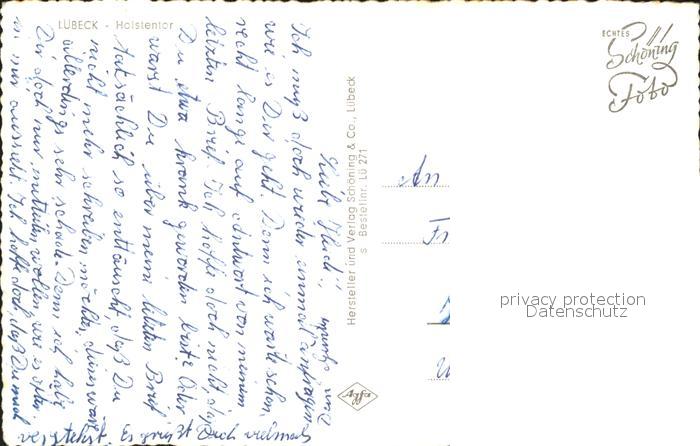 LÜBECK - Holstentor
Ich muß doch wieder einmal anfragen,
wie es Dir geht. Denn ich warte schon
recht lange auf Antwort von meinem
letzten Brief. Ich hoffe doch nicht, daß
Du etwa krank geworden bist? Oder
warst Du über meinen letzten Brief
tatsächlich so enttäuscht, daß Du
nicht mehr schreiben möchtest, dieses wäre
allerdings sehr schade. Denn ich habe
Dir doch nur mitteilen wollen, wie es
in mir aussieht. Ich hoffe doch, daß Du mich
verstehst. Es grüßt Dich vielmals
Hersteller und Verlag Schöning & Co., Lübeck
s Bestellnr. LÜ 271
Agfa
ECHTES
Schöning
Foto
An
Fr
privacy protection
Datenschutz